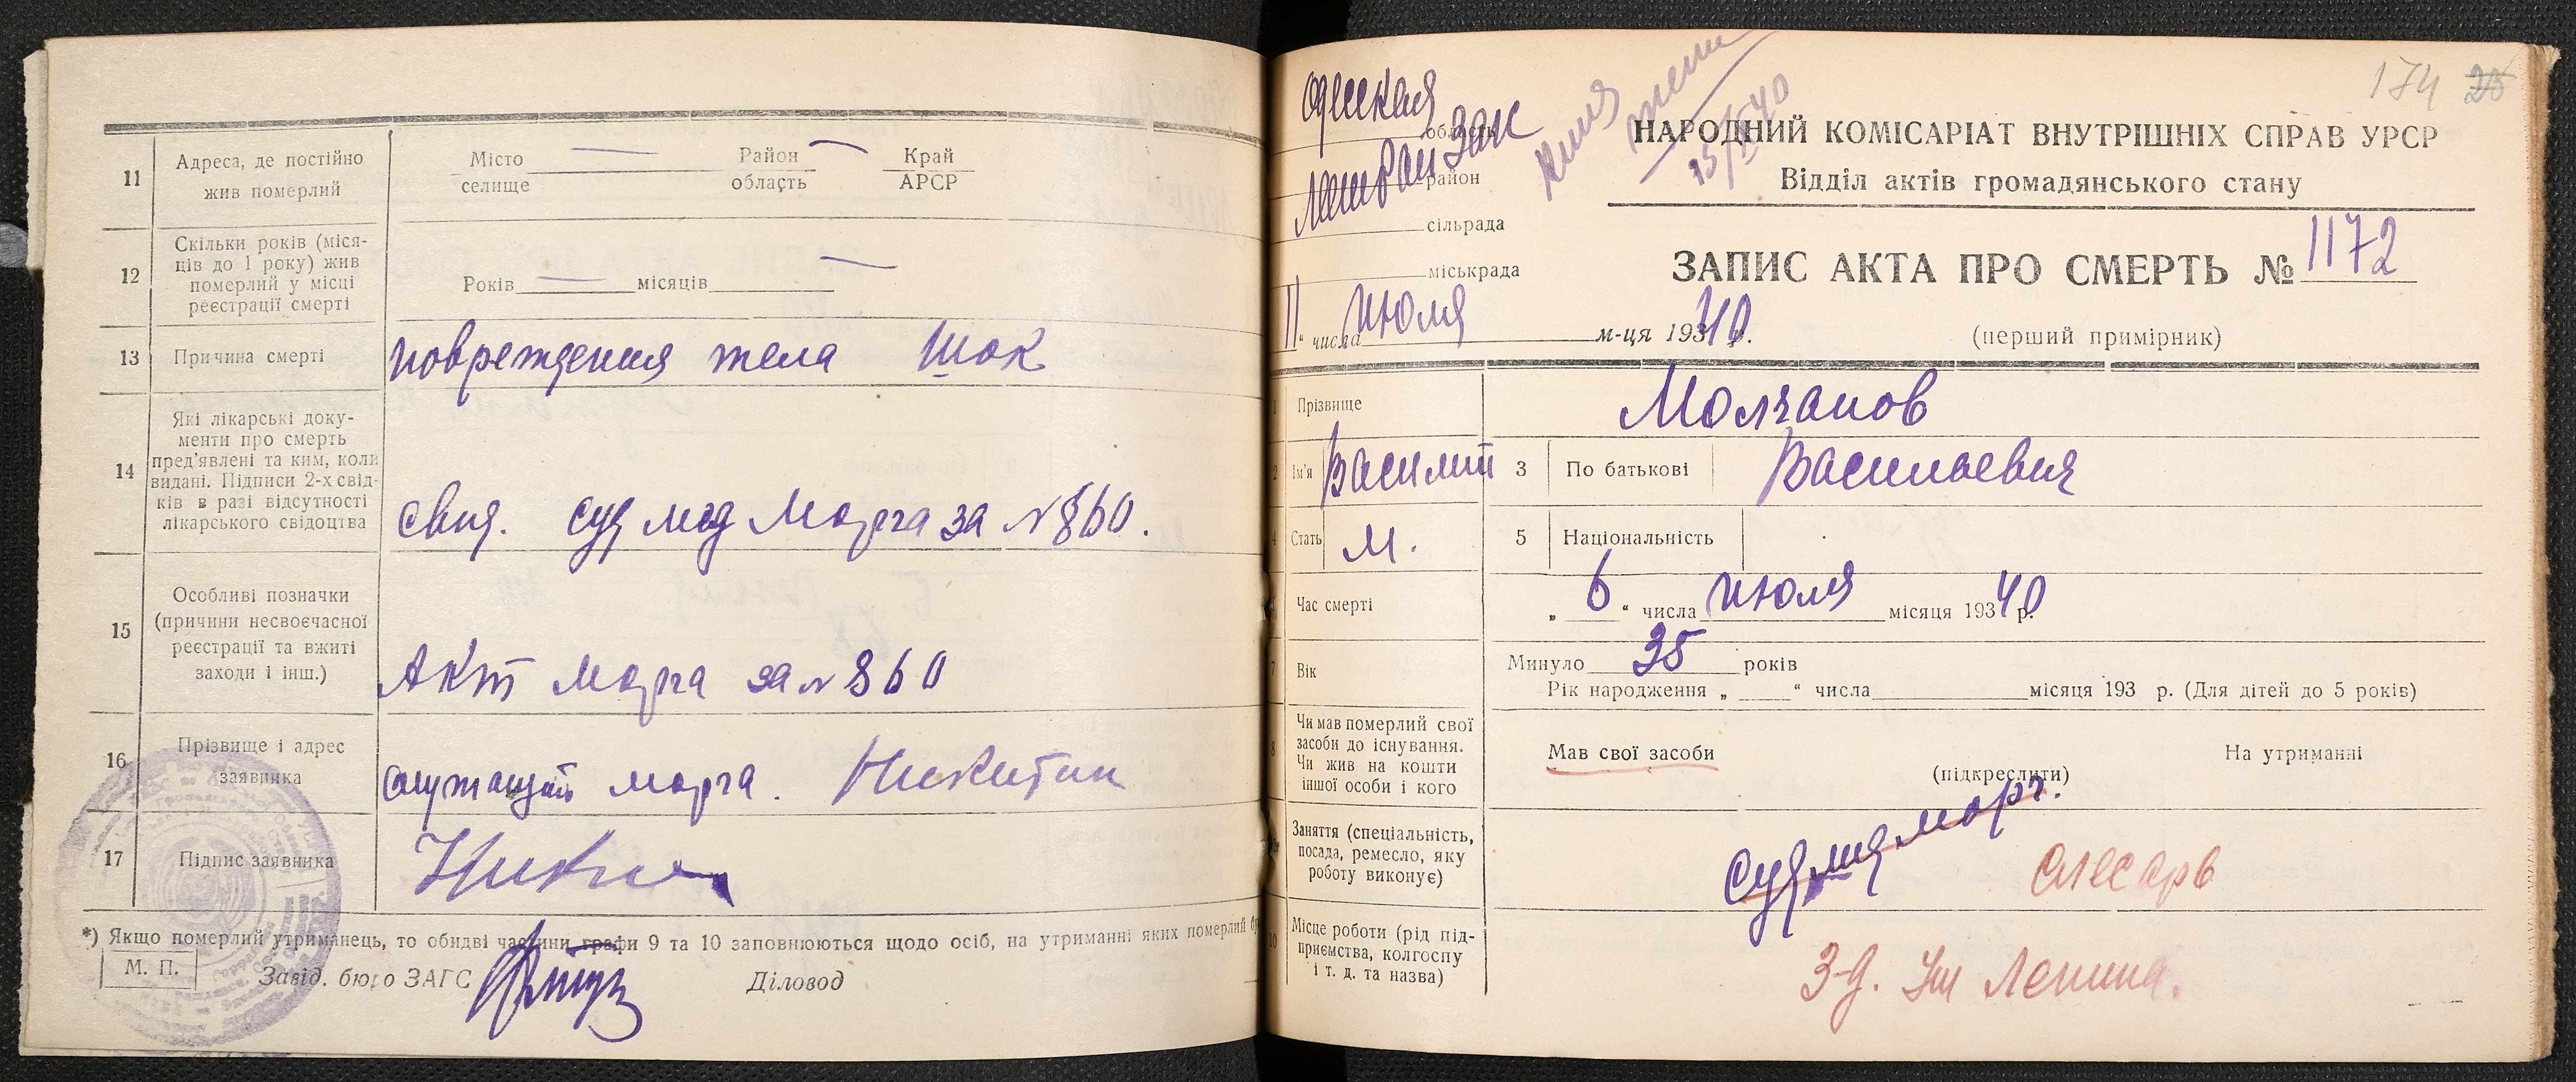 11
Адреса, де постійно
жив померлий
Місто
селище
Район
область
Край
АРСР
12
Скільки років (міся-
ців до 1 року) жив
померлий у місці
реєстрації смерті
Років — місяців —
13
Причина смерті
повреждения тела Шок
14
Які лікарські доку-
менти про смерть
пред'явлені та ким, коли
видані. Підписи 2-х свід-
ків в разі відсутності
лікарського свідоцтва
свид. суд мед Морга за № 860.
15
Особливі позначки
(причини несвоєчасної
реєстрації та вжиті
заходи і інш.)
Акт Морга за № 860
16
Прізвище і адрес
заявника
служащий морга. Никитин
17
Підпис заявника
*) Якщо померлий утриманець, то обидві частини графи 9 та 10 заповнюються щодо осіб, на утриманні яких померлий
М. П.
Завід. бюро ЗАГС
Діловод
174 25
Одесская область
район
сільрада
міськрада
15/ 40
НАРОДНИЙ КОМІСАРІАТ ВНУТРІШНІХ СПРАВ УРСР
Відділ актів громадянського стану
ЗАПИС АКТА ПРО СМЕРТЬ № 1172
11 " числа июля м-ця 193 40 р.
(перший примірник)
1
Прізвище
Молчанов
2
Ім'я
Василий
3
По батькові
Васильевич
4
Стать
М.
5
Національність
Час смерті
„ 6 “ числа июля місяця 193 40 р.
7
Вік
Минуло 35 років
Рік народження „ “ числа місяця 193 р. (Для дітей до 5 років)
8
Чи мав померлий свої
засоби до існування.
Чи жив на кошти
іншої особи і кого
Мав свої засоби
(підкреслити)
На утриманні
Заняття (спеціальність,
посада, ремесло, яку
роботу виконує)
Суд мед морг.
слесарь
10
Місце роботи (рід під-
приємства, колгоспу
і т. д. та назва)
З-д. Им Ленина.